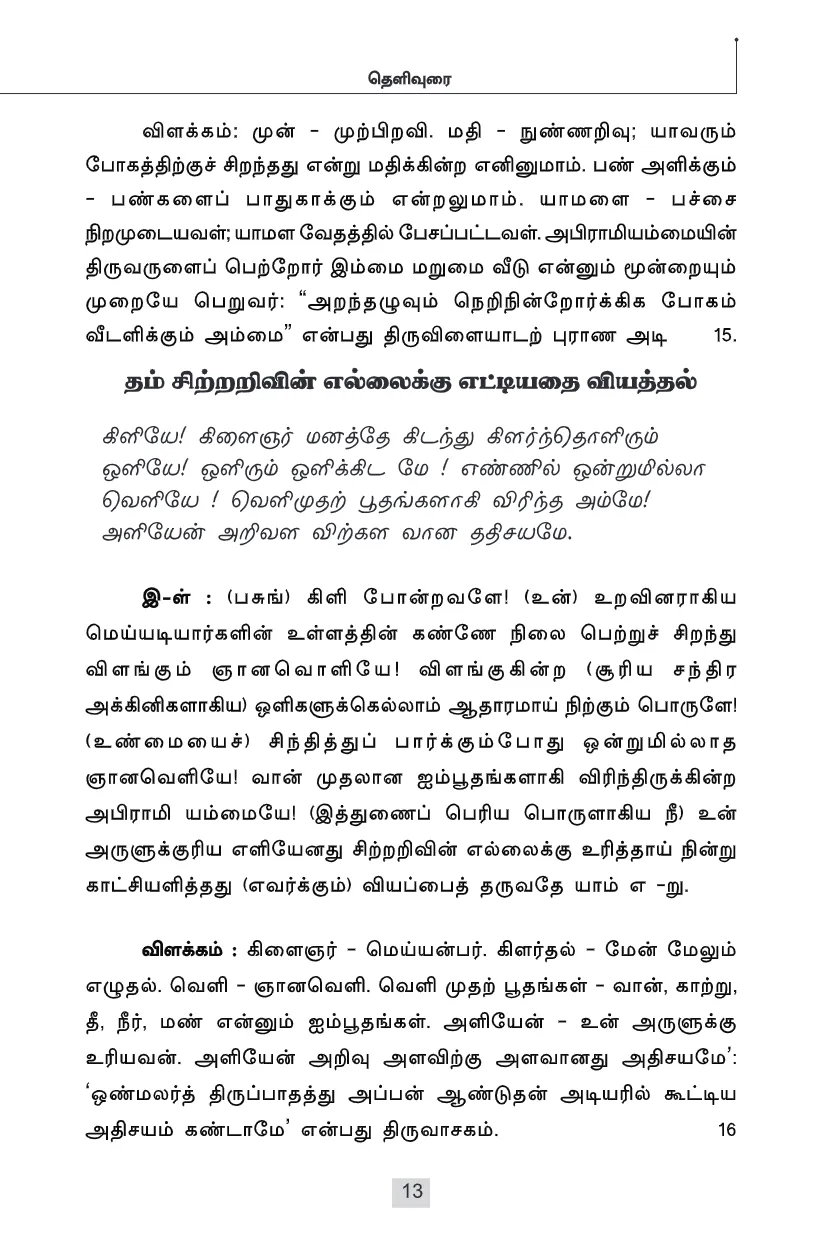 தெளிவுரை
விளக்கம்: முன் – முற்பிறவி. மதி – நுண்ணறிவு; யாவரும்
போகத்திற்குச் சிறந்தது என்று மதிக்கின்ற எனினுமாம். பண் அளிக்கும்
– பண்களைப் பாதுகாக்கும் என்றலுமாம். யாமளை – பச்சை
நிறமுடையவள்; யாமள வேதத்தில் பேசப்பட்டவள். அபிராமியம்மையின்
திருவருளைப் பெற்றோர் இம்மை மறுமை வீடு என்னும் மூன்றையும்
முறையே பெறுவர்: “அறந்தழுவும் நெறிநின்றோர்க்கிக போகம்
வீடளிக்கும் அம்மை” என்பது திருவிளையாடற் புராண அடி 15.
தம் சிற்றறிவின் எல்லைக்கு எட்டியதை வியத்தல்
கிளியே! கிளைஞர் மனத்தே கிடந்து கிளர்ந்தொளிரும்
ஒளியே! ஒளிரும் ஒளிக்கிட மே ! எண்ணில் ஒன்றுமில்லா
வெளியே ! வெளிமுதற் பூதங்களாகி விரிந்த அம்மே!
அளியேன் அறிவள விற்கள வான ததிசயமே.
இ-ள் : (பசுங்) கிளி போன்றவளே! (உன்) உறவினராகிய
மெய்யடியார்களின் உள்ளத்தின் கண்ணே நிலை பெற்றுச் சிறந்து
விளங்கும் ஞானவொளியே! விளங்குகின்ற (சூரிய சந்திர
அக்கினிகளாகிய) ஒளிகளுக்கெல்லாம் ஆதாரமாய் நிற்கும் பொருளே!
(உண்மையைச்) சிந்தித்துப் பார்க்கும்போது ஒன்றுமில்லாத
ஞானவெளியே! வான் முதலான ஐம்பூதங்களாகி விரிந்திருக்கின்ற
அபிராமி யம்மையே! (இத்துணைப் பெரிய பொருளாகிய நீ) உன்
அருளுக்குரிய எளியேனது சிற்றறிவின் எல்லைக்கு உரித்தாய் நின்று
காட்சியளித்தது (எவர்க்கும்) வியப்பைத் தருவதே யாம் எ –று.
விளக்கம் : கிளைஞர் – மெய்யன்பர். கிளர்தல் – மேன் மேலும்
எழுதல். வெளி – ஞானவெளி. வெளி முதற் பூதங்கள் – வான், காற்று,
தீ, நீர், மண் என்னும் ஐம்பூதங்கள். அளியேன் – உன் அருளுக்கு
உரியவன். அளியேன் அறிவு அளவிற்கு அளவானது அதிசயமே’:
‘ஒண்மலர்த் திருப்பாதத்து அப்பன் ஆண்டுதன் அடியரில் கூட்டிய
அதிசயம் கண்டாமே’ என்பது திருவாசகம். 16
13